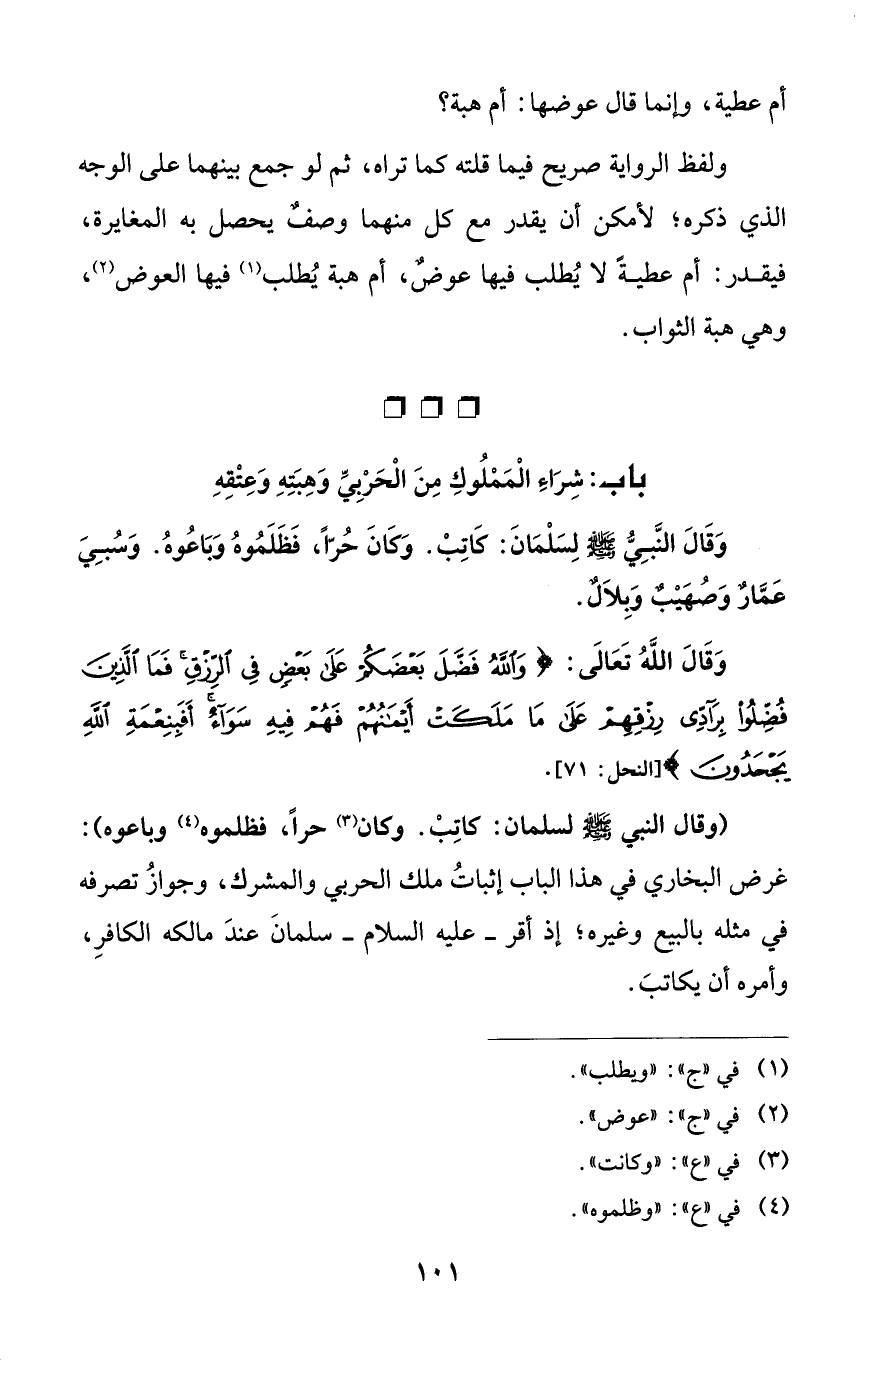 أم عطية، وإنما قال عوضها: أم هبة؟
ولفظ الرواية صريح فيما قلته كما تراه، ثم لو جمع بينهما على الوجه
الذي ذكره؛ لأمكن أن يقدر مع كل منهما وصفٌ يحصل به المغايرة،
فيقدر: أم عطيةً لا يُطلب فيها عوضٌ، أم هبة يُطلب(١) فيها العوض(٢)،
وهي هبة الثواب.
□ □ □
باب: شِرَاءِ الْمَمْلُوكِ مِنَ الْحَرْبِيِّ وَهِبَتِهِ وَعِتْقِهِ
وَقَالَ النَّبِيُّ ﷺ لِسَلْمَانَ: كَاتِبْ. وَكَانَ حُرّاً، فَظَلَمُوهُ وَبَاعُوهُ. وَسُبِيَ
عَمَّارٌ وَصُهَيْبٌ وَبِلاَلٌ.
وَقَالَ اللَّهُ تَعَالَى: ﴿ وَٱللَّهُ فَضَّلَ بَعْضَكُمْ عَلَىٰ بَعْضٍ فِى ٱلرِّزْقِ ۚ فَمَا ٱلَّذِينَ
فُضِّلُوا۟ بِرَآدِّى رِزْقِهِمْ عَلَىٰ مَا مَلَكَتْ أَيْمَٰنُهُمْ فَهُمْ فِيهِ سَوَآءٌ ۚ أَفَبِنِعْمَةِ ٱللَّهِ
يَجْحَدُونَ ﴾[النحل: ٧١].
(وقال النبي ﷺ لسلمان: كاتِبْ. وكان(٣) حراً، فظلموه(٤) وباعوه):
غرض البخاري في هذا الباب إثباتُ ملك الحربي والمشرك، وجوازُ تصرفه
في مثله بالبيع وغيره؛ إذ أقر ـ عليه السلام ـ سلمانَ عندَ مالكه الكافرِ،
وأمره أن يكاتبَ.
(١) في «ج»: «ويطلب».
(٢) في «ج»: «عوض».
(٣) في «ع»: «وكانت».
(٤) في «ع»: «وظلموه».
١٠١